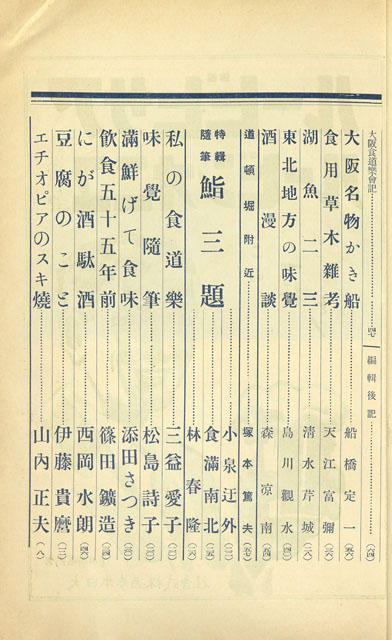 大阪食道樂會記……(四七)
編輯後記……(六四)
大阪名物かき船……船橋定一(五六)
食用草木雜考……天江富彌(三六)
湖魚二三……清水芹城(二八)
東北地方の味覺……島川觀水(四〇)
酒漫談……森凉南(五四)
道頓堀附近……塚本篤夫(五七)
特輯隨筆 鮨三題
小泉迂外
食滿南北
林春隆
私の食道樂……三益愛子
味覺隨筆……松島詩子
滿鮮げて食味……添田さつき
飮食五十五年前……篠田鑛造
にが酒駄酒……西岡水朗(四六)
豆腐のこと……伊藤貴麿(三三)
エチオピアのスキ燒……山內正夫(八)